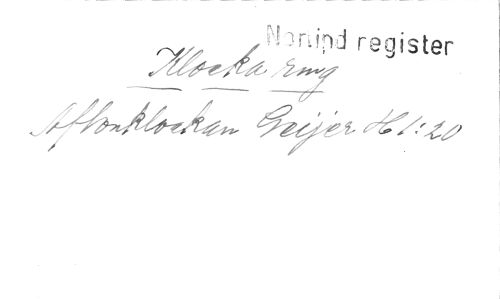 Norind register
Klocka ring
Aftonklockan Geijer H 1:20